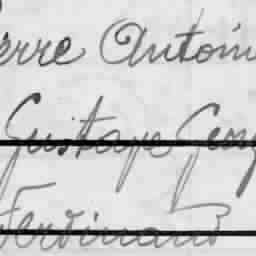 ierre Antoin
Gustave Geor
Ferdinand